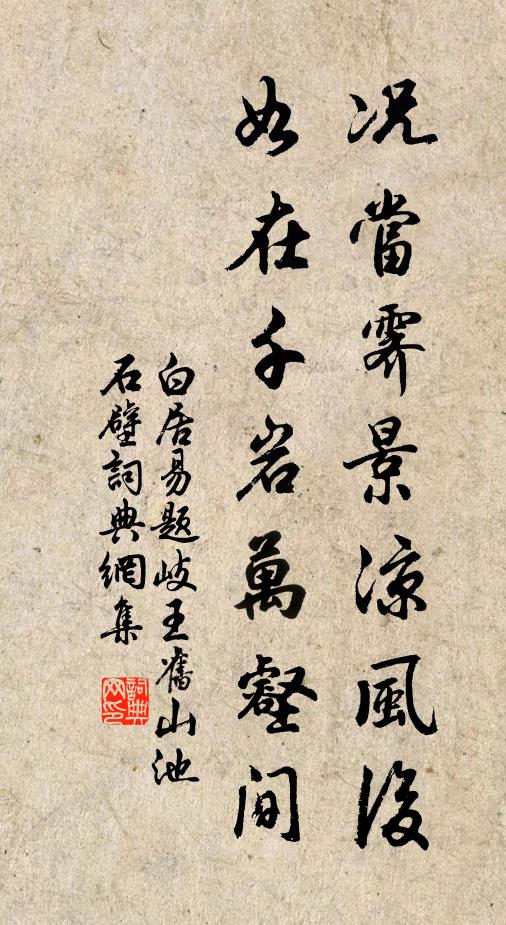 况當霽景涼風後
如在千岩萬壑間
白居易題岐王舊山池
石壁詞典網集
詞典
网印